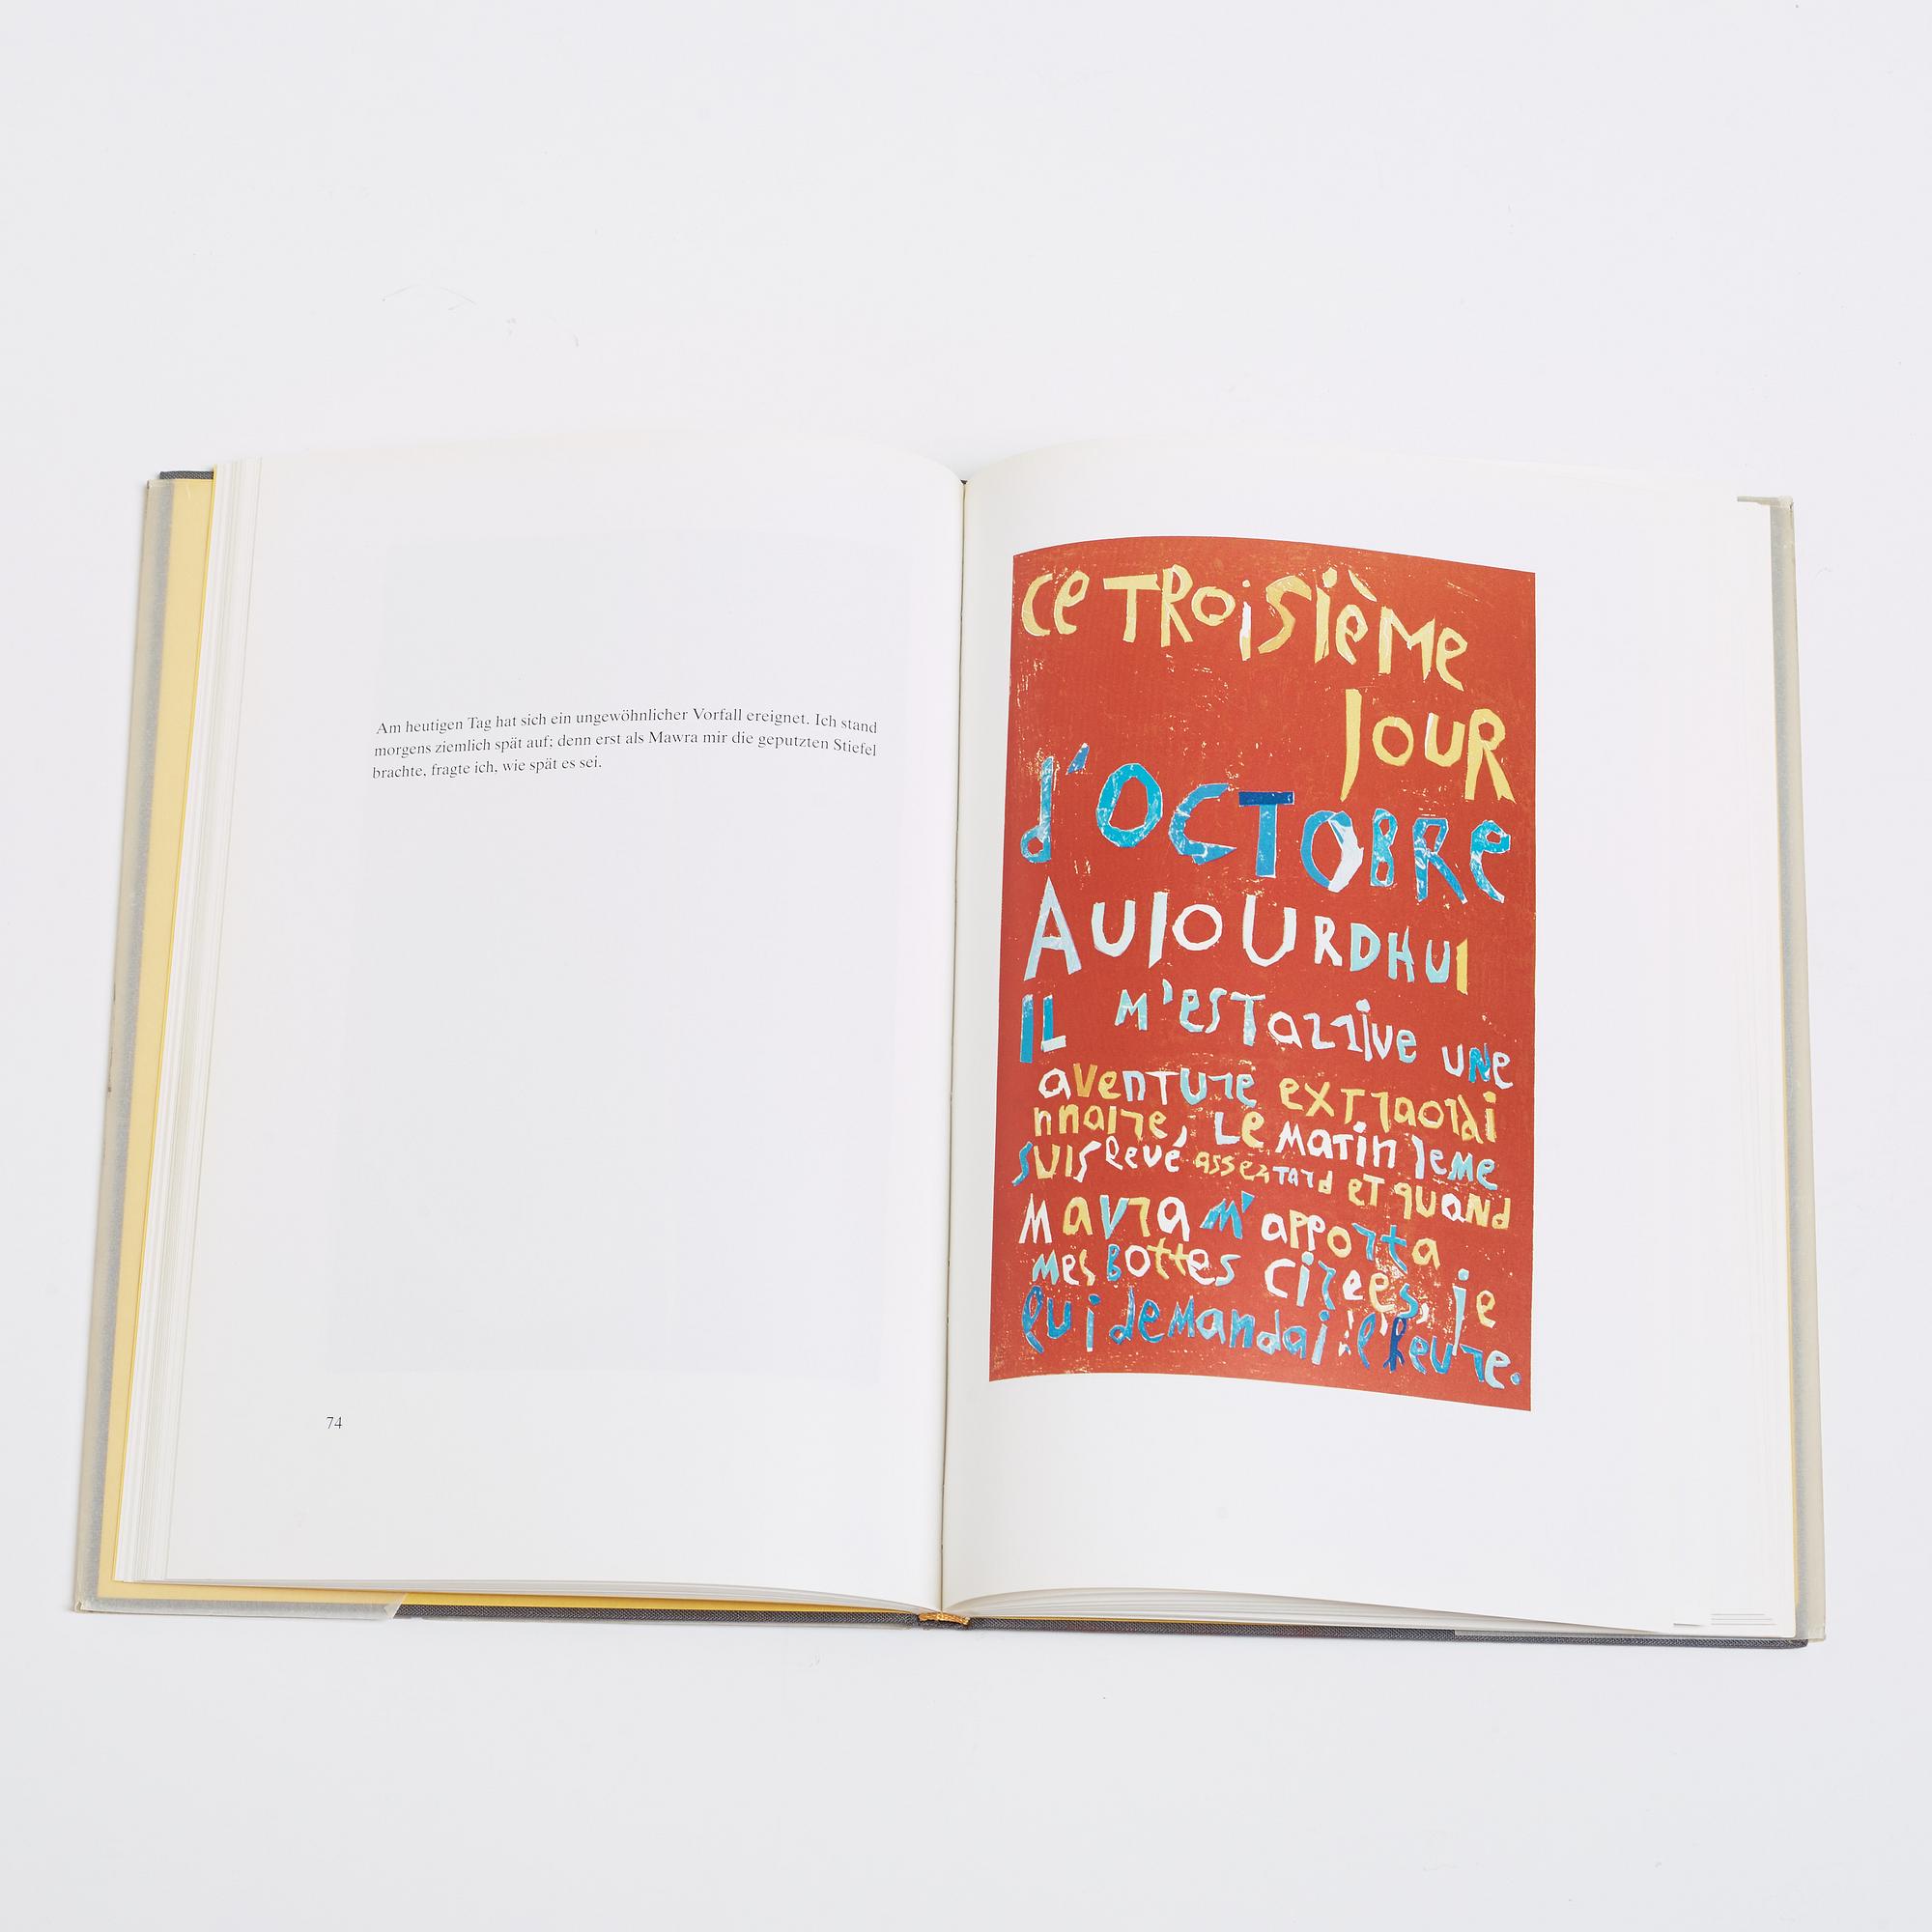 Am heutigen Tag hat sich ein ungewöhnlicher Vorfall ereignet. Ich stand
morgens ziemlich spät auf; denn erst als Mawra mir die geputzten Stiefel
brachte, fragte ich, wie spät es sei.
74
Ce TRoisième
JOUR
d'OCTOBRe
AUJOURDHUI
IL M'eST arrive une
aventure extraordi
nnaire, Le Matin Jeme
suis levé assez tard et quand
Mavra m'apporta
mes Bottes cirees, je
lui demandai l heure.